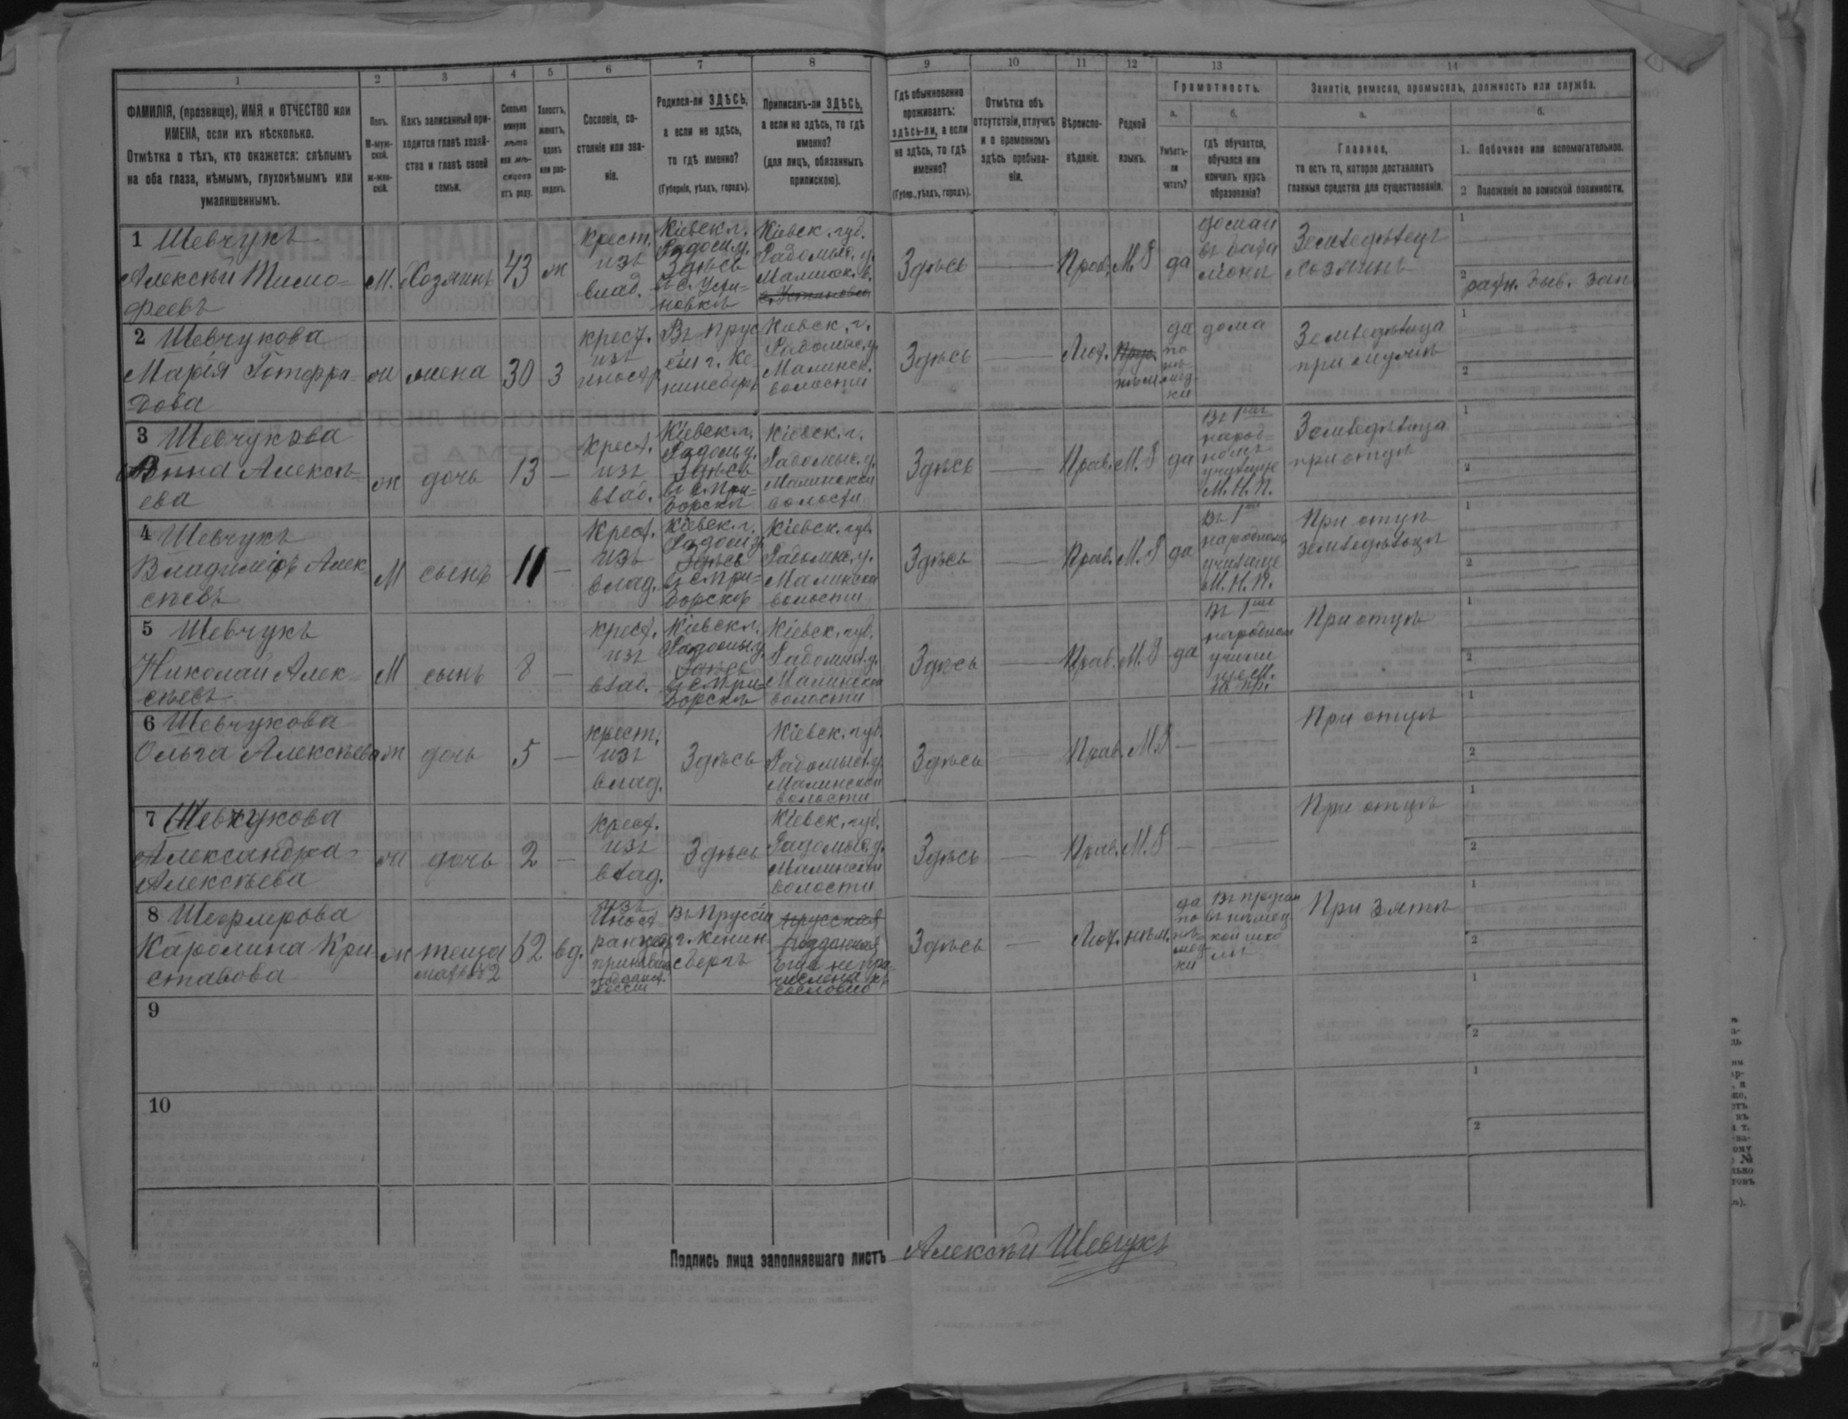 1 2 3 4 5 6 7 8 9 10 11 12 13 14
ФАМИЛІЯ, (прозвище), ИМЯ и ОТЧЕСТВО или
ИМЕНА, если ихъ нѣсколько.
Отмѣтка о тѣхъ, кто окажется: слѣпымъ
на оба глаза, нѣмымъ, глухонѣмымъ или
умалишеннымъ.
Полъ.
М-муж-
ской.
ж-жен-
скій.
Какъ записанный при-
ходится главѣ хозяй-
ства и главѣ своей
семьи.
Сколько
минуло
лѣтъ
или мѣ-
сяцевъ
отъ роду.
Холостъ,
женатъ,
вдовъ
или раз-
веденъ.
Сословіе, со-
стояніе или зва-
ніе.
Родился-ли ЗДѢСЬ,
а если не здѣсь,
то гдѣ именно?
(Губернія, уѣздъ, городъ).
Приписанъ-ли ЗДѢСЬ,
а если не здѣсь, то гдѣ
именно?
(для лицъ, обязанныхъ
припискою).
Гдѣ обыкновенно
проживаетъ:
здѣсь-ли, а если
не здѣсь, то гдѣ
именно?
(Губер., уѣздъ, городъ).
Отмѣтка объ
отсутствіи, отлучкѣ
и о временномъ
здѣсь пребыва-
ніи.
Вѣроиспо-
вѣданіе.
Родной
языкъ.
Грамотность.
а.
Умѣетъ-
ли
читать?
б.
гдѣ обучается,
обучался или
кончилъ курсъ
образованія?
Занятіе, ремесло, промыселъ, должность или служба.
а.
Главное,
то есть то, которое доставляетъ
главныя средства для существованія.
б.
1. Побочное или вспомогательное.
2 Положеніе по воинской повинности.
1 Шевчукъ
Алексѣй Тимо-
феевъ
М. Хозяинъ 43 ж
Крест.
изъ
влад.
Кіевск.г.
Радом.у.
Здѣсь
въ с. Усти-
новкѣ
Кіевск. губ.
Радомыс. у.
Малинск. в.
с. Устиновка
Здѣсь — Прав. М.Р да
Земледѣлецъ
хозяинъ
1
2
2 Шевчукова
Марія Готфри-
дова
ж жена 30 з
крест.
изъ
иностр
Въ Прус
сіи г. Ке
нинсбергъ
Кіевск. г.
Радомыс.у.
Малинск.
волости
Здѣсь — Лют.
нѣм.
да
по
нѣ-
мец-
ки
дома
Земледѣлица
при мужѣ
1
2
3 Шевчукова
Анна Алексѣ-
ева
ж дочь 13 —
Крест.
изъ
влад.
Кіевск.г.
Радом.у.
Здѣсь
въ с. При-
борскѣ
Кіевск. г.
Радомыс. у.
Малинской
волости
Здѣсь — Прав. М.Р да
Въ 1мъ
народ-
номъ
училище
М.Н.П.
Земледѣлица
при отцѣ
1
2
4 Шевчукъ
Владиміръ Алек
сѣевъ
М сынъ 11 —
Крест.
изъ
влад.
Кіевск.г.
Радом.у.
Здѣсь
въ с. При-
борскѣ
Кіевск. губ.
Радомыс. у.
Малинской
волости
Здѣсь — Прав. М.Р да
въ 1мъ
народномъ
училище
М.Н.П.
При отцѣ
земледѣлецъ
1
2
5 Шевчукъ
Николай Алек-
сѣевъ
М сынъ 8 —
Крест.
изъ
влад.
Кіевск.г.
Радомы.у.
Здѣсь
въ с. При-
борскѣ
Кіевск. губ.
Радомыс.у.
Малинской
волости
Здѣсь — Прав. М.Р да
Въ 1мъ
народном
учили
ще М.
Н. Пр.
При отцѣ
1
2
6 Шевчукова
Ольга Алексѣева
ж дочь 5 —
Крест.
изъ
влад.
Здѣсь
Кіевск. губ.
Радомыс.у.
Малинской
волости
Здѣсь — Прав. М.Р — —
При отцѣ
1
2
7 Шевчукова
Александра
Алексѣева
ж дочь 2 —
Крест.
изъ
влад.
Здѣсь
Кіевск. губ.
Радомыс.у.
Малинской
волости
Здѣсь — Прав. М.Р — —
При отцѣ
1
2
8
Каролина Кри-
ставова
ж теща 62 вд.
Въ Пруссіи
г. Кенин
сбергъ
прусская
подданная
Здѣсь — Лют. нѣм.
да
по
нѣ-
мец-
ки
При зятѣ
1
2
9
1
2
10
1
2
Подпись лица заполнявшаго листъ Алексѣй Шевчукъ